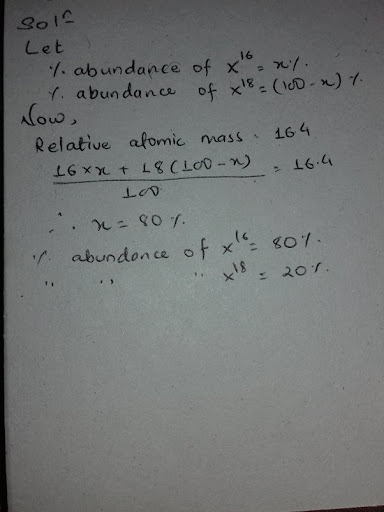 Solⁿ
Let
% abundance of x¹⁶ = x%.
% abundance of x¹⁸ = (100 - x) %
Now,
Relative atomic mass = 16.4
16 × x + 18 (100 - x)
100
= 16.4
∴ x = 80 %.
% abundance of x¹⁶ = 80%.
" " " x¹⁸ = 20%.